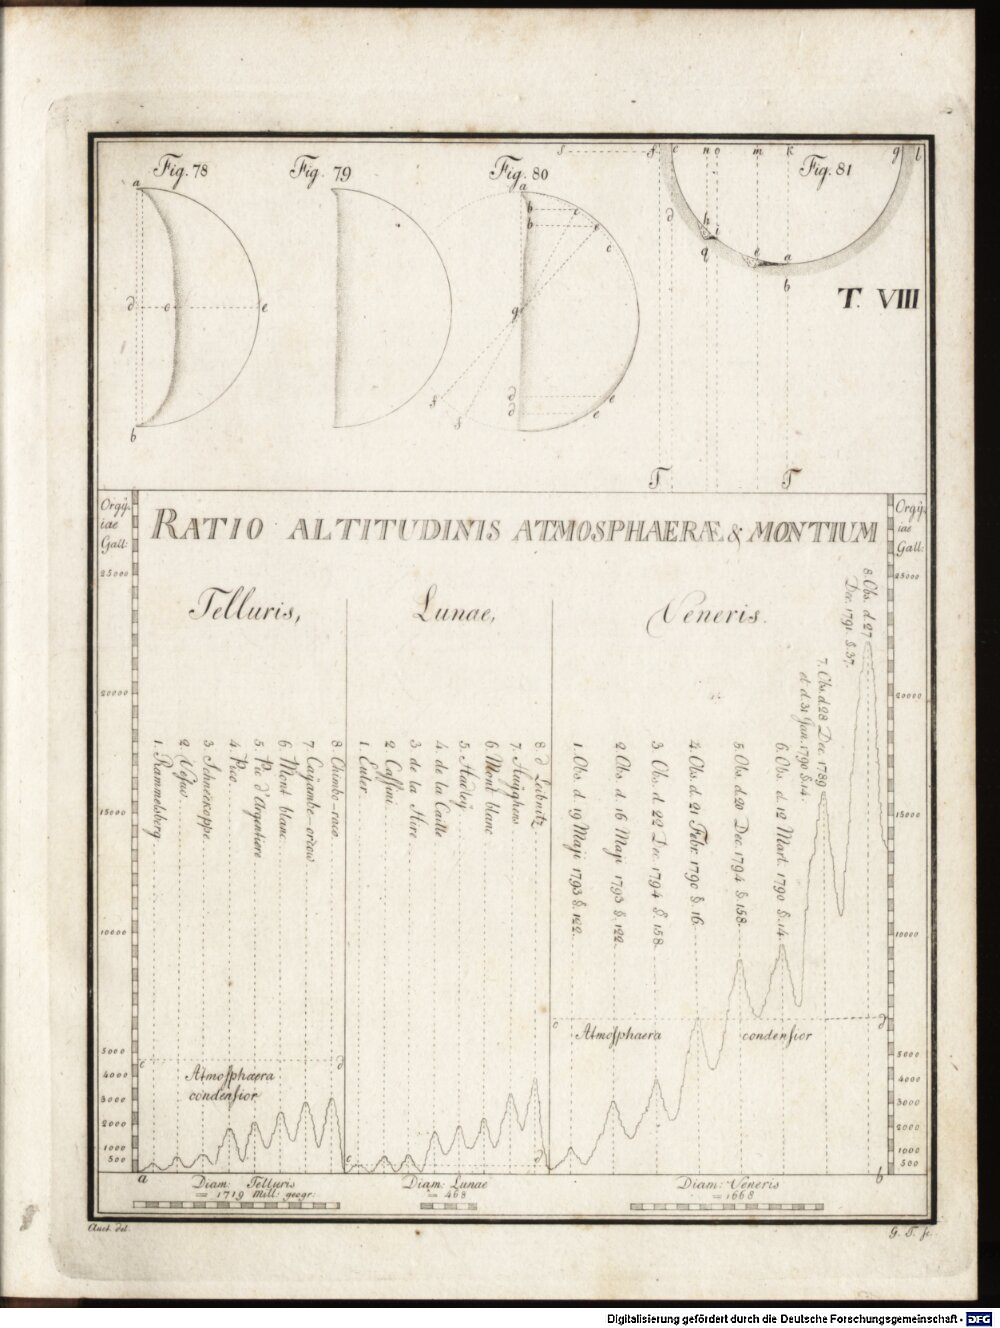 Fig. 78
Fig. 79
Fig. 80
Fig. 81
a
d
c
e
b
a
b
c
b
e
c
g
f
f
d
e
d
e
f
f
c
n
o
m
k
g
l
d
h
i
q
e
a
b
T
T
T. VIII
Orgÿ-
iae
Gall:
Orgÿ-
iae
Gall:
RATIO ALTITUDINIS ATMOSPHAERÆ & MONTIUM
Telluris,
Lunae,
Veneris.
25000
20000
15000
10000
5000
4000
3000
2000
1000
500
1. Rammelsberg
2. Vesuv
3. Schneekoppe
4. Pico
5. Pic d'Argentiere
6. Mont blanc
7. Cajambe-orcou
8. Chimbo-raco
1. Euler
2. Cassini
3. de la Hire
4. de la Caille
5. Hadleÿ
6. Mont blanc
7. Huÿghens
8. d Leibnitz
1. Obs. d. 19 Maji 1793 §. 122.
2. Obs. d. 16 Maji 1793 §. 122.
3. Obs. d. 22 Dec. 1794 §. 158
4. Obs. d. 21 Febr. 1790 §. 16.
5. Obs. d. 20 Dec. 1794 §. 158.
6. Obs. d. 12 Mart. 1790 §. 14.
7. Obs. d. 28 Dec. 1789
et d. 31 Jan. 1790 §. 14.
8. Obs. d. 27
Dec. 1791. §. 37.
25000
20000
15000
10000
5000
4000
3000
2000
1000
500
c
d
Atmosphaera
condensior
c
d
c
Atmosphaera condensior
d
a
b
Diam: Telluris
= 1719 Mill: geogr:
Diam: Lunae
= 468
Diam: Veneris
= 1668
Auct. del.
G. T. sc.
Digitalisierung gefördert durch die Deutsche Forschungsgemeinschaft - DFG